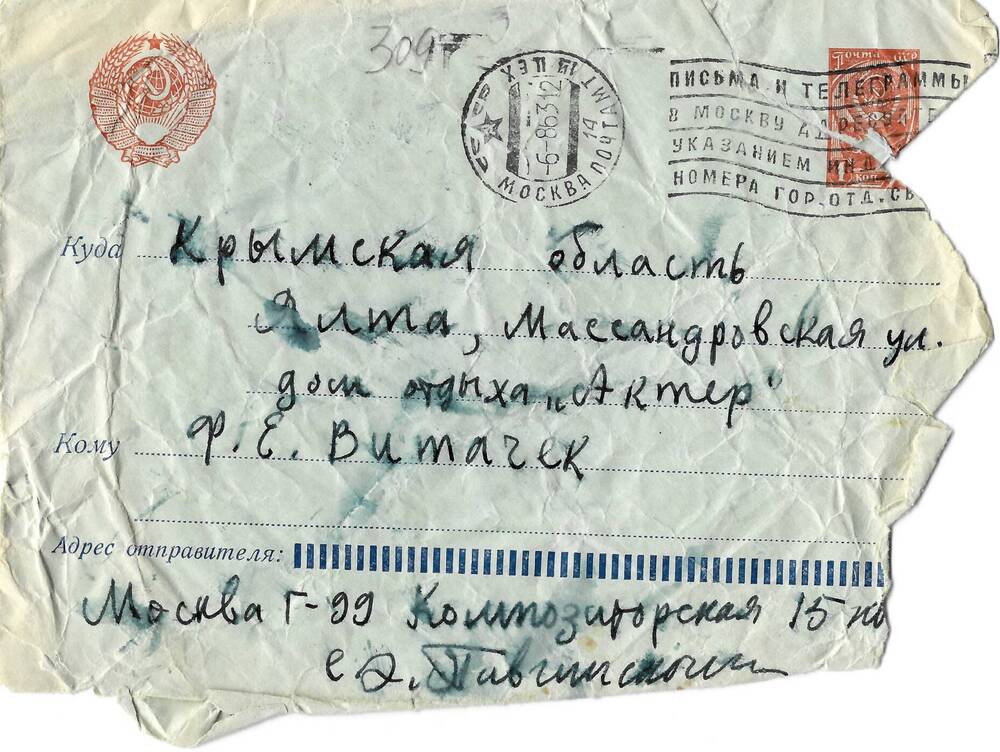 309
Почта СССР
коп
СССР МОСКВА ПОЧТАМТ 19 ПЕХ
-6-8631 2
ПИСЬМА И ТЕЛЕГРАММЫ
В МОСКВУ АДРЕСУ
УКАЗАНИЕМ ИНД
НОМЕРА ГОР. ОТД. СВ
Куда Крымская область
Ялта, Массандровская ул.
дом отдыха „Актер"
Кому Ф. Е. Витачек
Адрес отправителя:
Москва Г-99 Композиторская 15